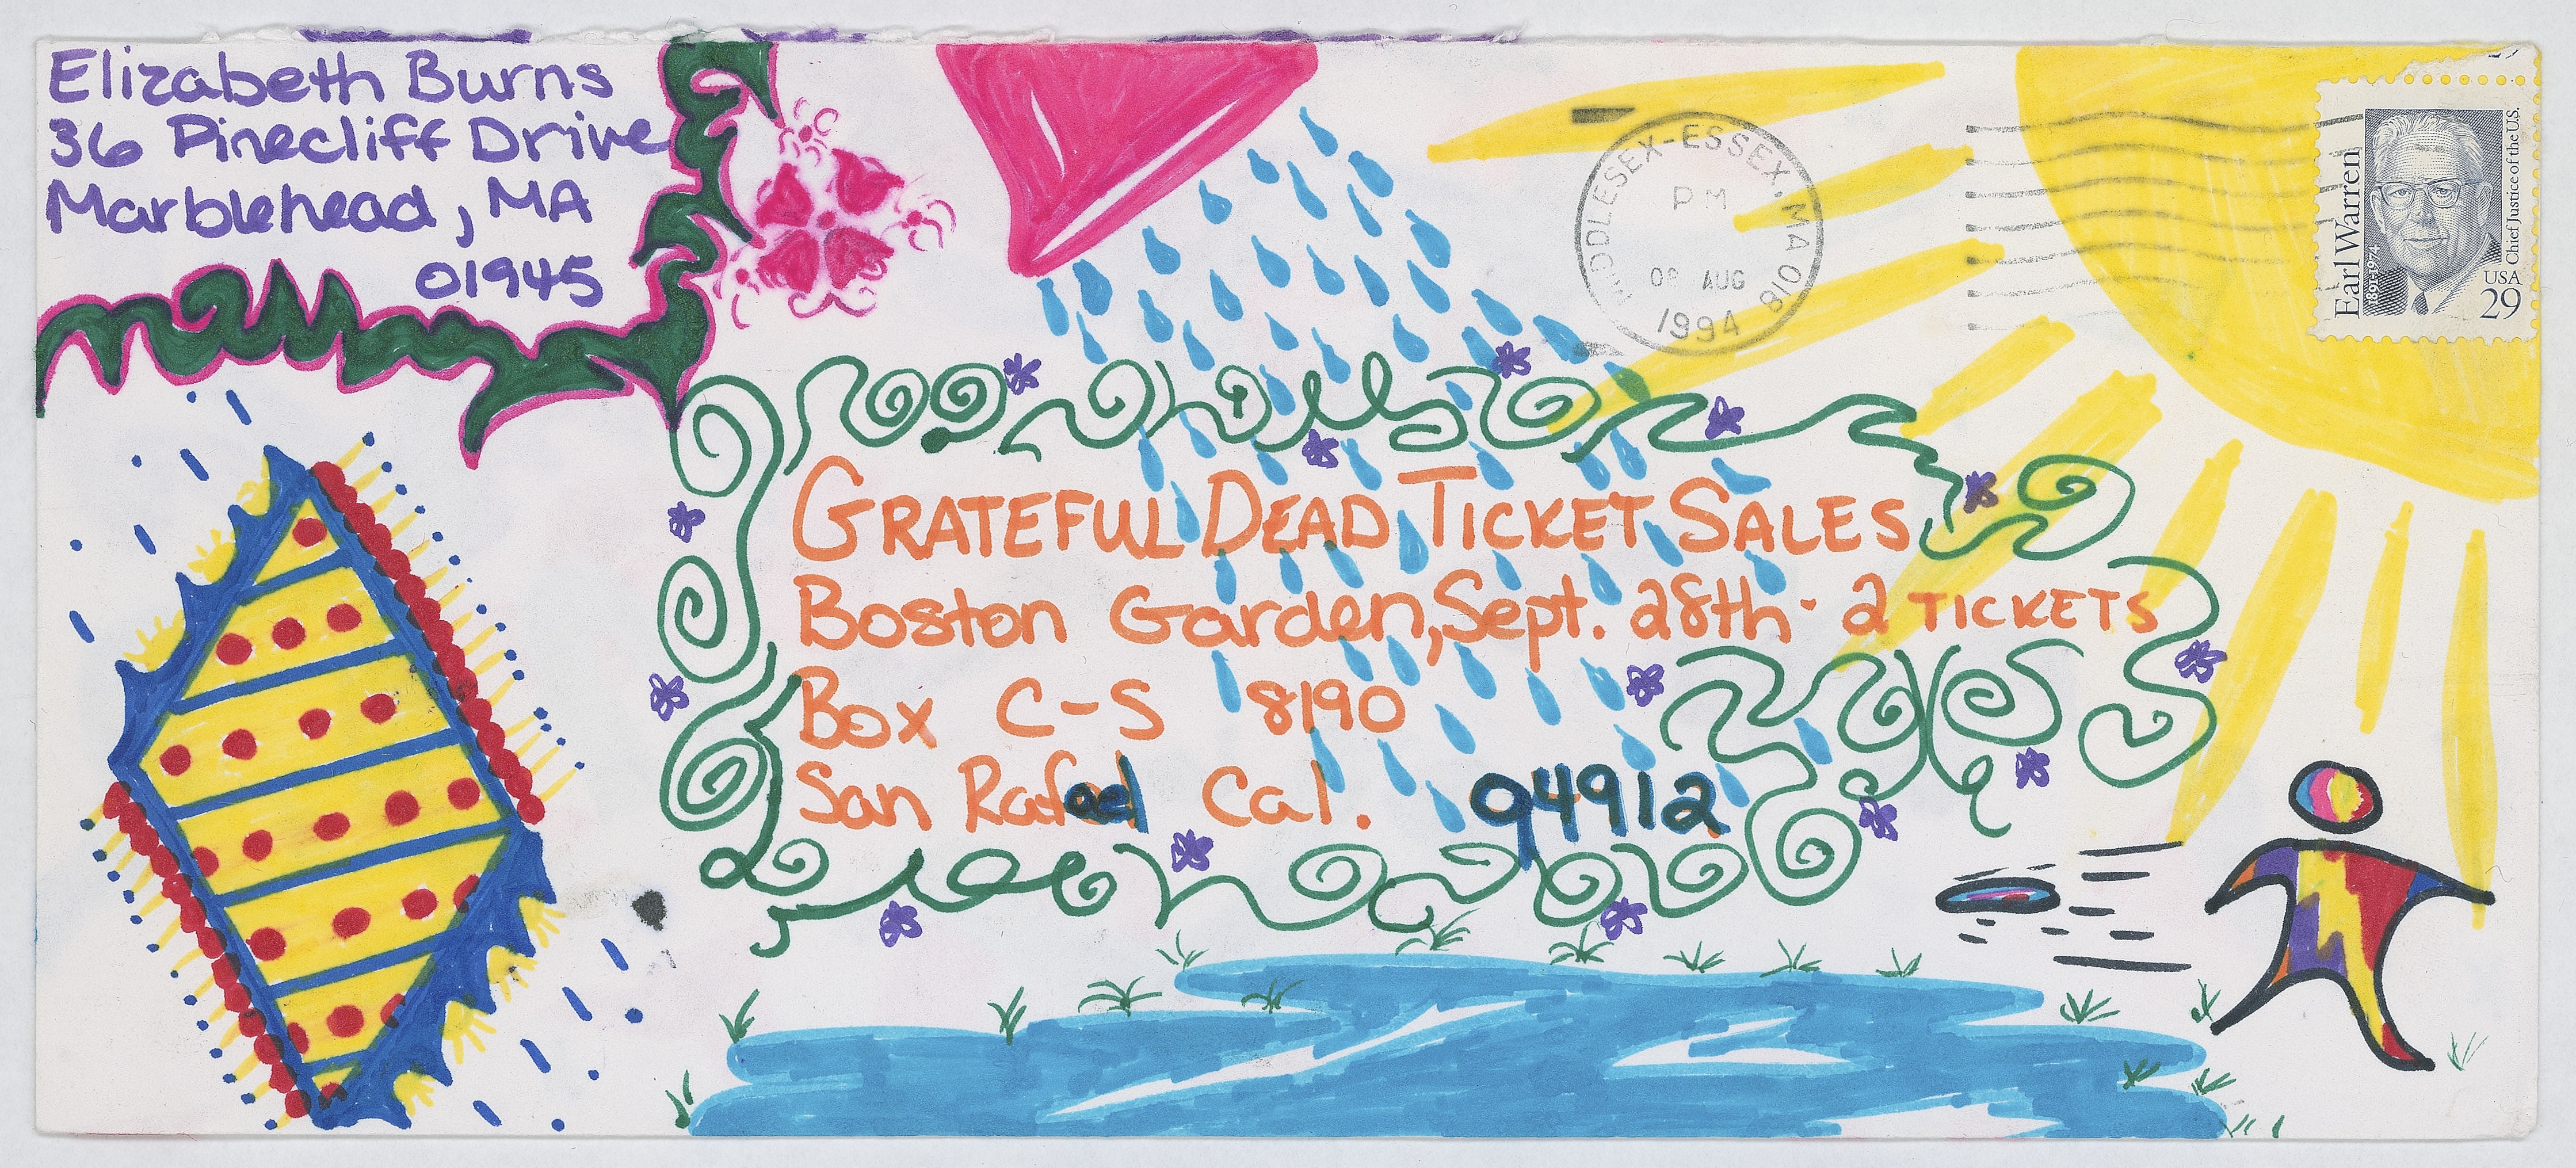 Elizabeth Burns
36 Pinecliff Drive
Marblehead, MA
01945
MIDDLESEX-ESSEX, MA 018
PM
08 AUG
1994
Earl Warren
1891-1974
Chief Justice of the U.S.
USA
29
GRATEFUL DEAD TICKET SALES
Boston Garden, Sept. 28th - 2 TICKETS
Box C-S 8190
San Rafael Cal. 94912